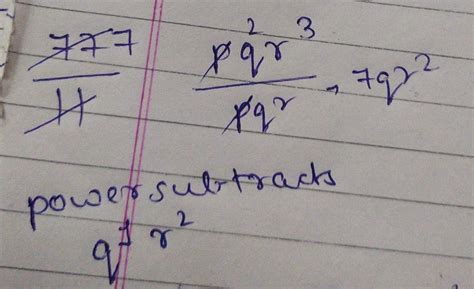 777 pq²r³
11 pqr , 7qr²
power subtracts
q¹ r²